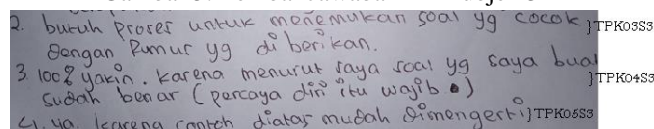 2. butuh Proses untuk menemukan soal yg cocok }TPK03S3
dengan Rumus yg di berikan.
3. 100% yakin. karena menurut saya soal yg saya buat }TPK04S3
sudah benar (percaya diri itu wajib)
4. ya. karena contoh diatas mudah dimengerti }TPK05S3